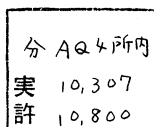 分 AQ4所内
実 10,307
許 10,800